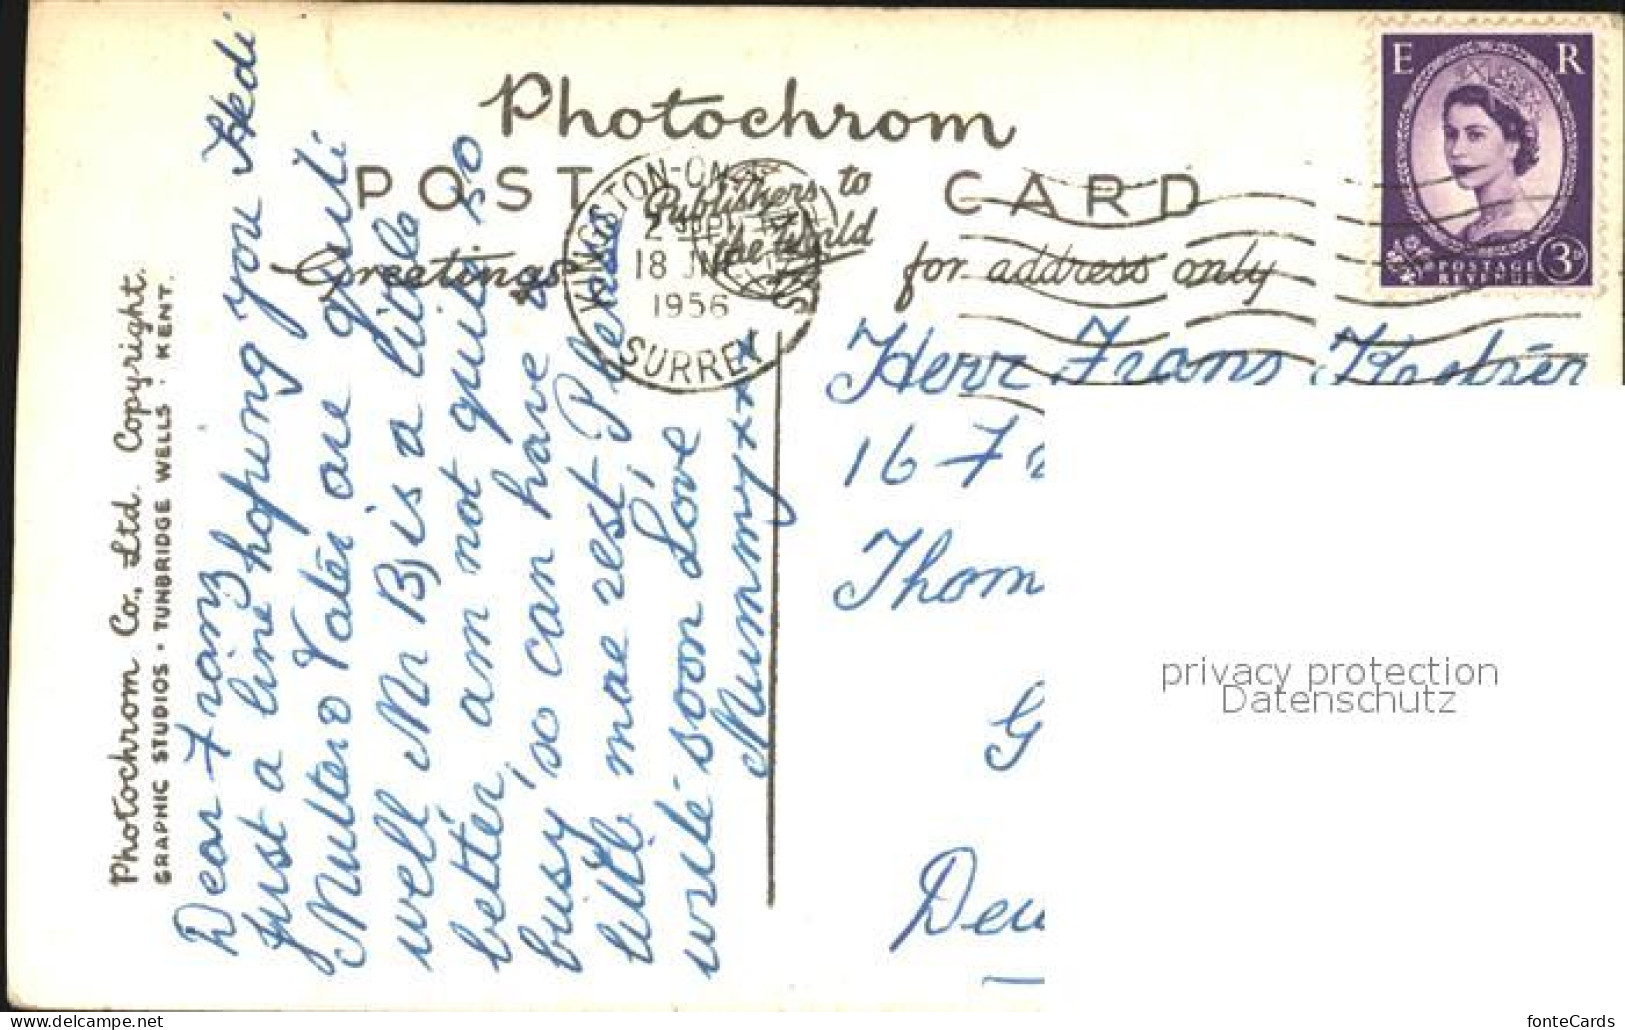 Photochrom
POST CARD
Publishers to
the World
Greetings
for address only
KINGSTON-ON-T
2
18 J
1956
SURREY
E R
POSTAGE
REVENUE
3D
Photochrom Co., Ltd. Copyright.
GRAPHIC STUDIOS · TUNBRIDGE WELLS · KENT.
Dear Franz
just a line hoping you Hedi
Mutter & Vater are quite
well Mr B, is a little
better, am not quite so
busy so can have a
little more rest, Please
write soon Love
Mummy xxx
Herr Frans
16 F
Thom
G
Deu
privacy protection
Datenschutz
delcampe.net
fonteCards